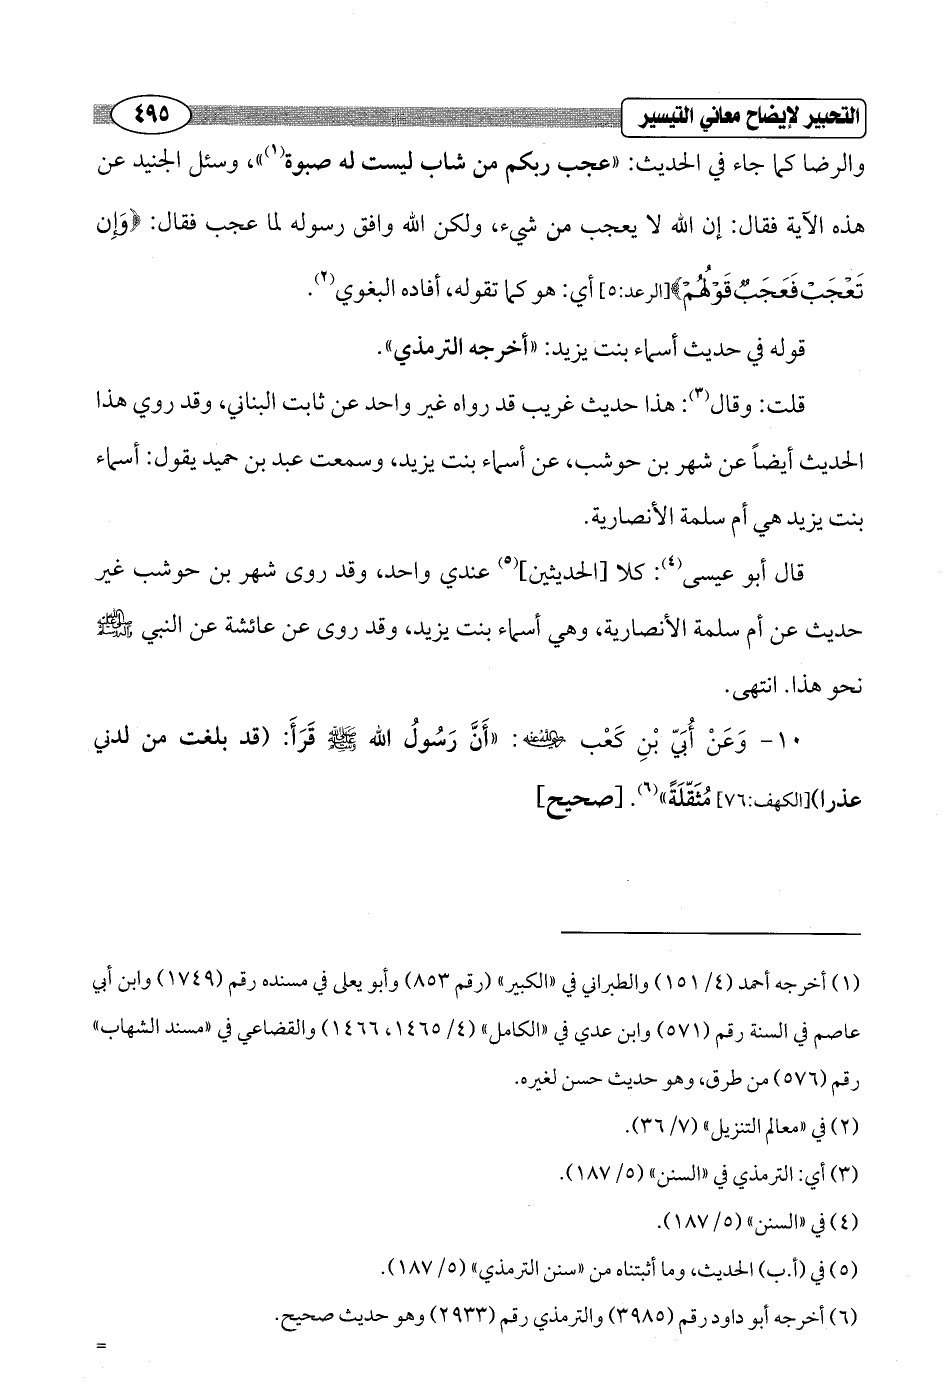 التحبير لإيضاح معاني التيسير
٤٩٥
والرضا كما جاء في الحديث: «عجب ربكم من شاب ليست له صبوة(١)»، وسئل الجنيد عن
هذه الآية فقال: إن الله لا يعجب من شيء، ولكن الله وافق رسوله لما عجب فقال: ﴿وَإِن
تَعْجَبْ فَعَجَبٌ قَوْلُهُمْ﴾[الرعد:٥] أي: هو كما تقوله، أفاده البغوي(٢).
قوله في حديث أسماء بنت يزيد: «أخرجه الترمذي».
قلت: وقال(٣): هذا حديث غريب قد رواه غير واحد عن ثابت البناني، وقد روي هذا
الحديث أيضاً عن شهر بن حوشب، عن أسماء بنت يزيد، وسمعت عبد بن حميد يقول: أسماء
بنت يزيد هي أم سلمة الأنصارية.
قال أبو عيسى(٤): كلا [الحديثين](٥) عندي واحد، وقد روى شهر بن حوشب غير
حديث عن أم سلمة الأنصارية، وهي أسماء بنت يزيد، وقد روى عن عائشة عن النبي ﷺ
نحو هذا. انتهى.
١٠- وَعَنْ أُبَيّ بْنِ كَعْب رضي الله عنه: «أَنَّ رَسُولُ الله ﷺ قَرَأَ: (قد بلغت من لدني
عذرا)[الكهف:٧٦] مُثَقَّلَةً»(٦). [صحيح]
(١) أخرجه أحمد (٤/ ١٥١) والطبراني في «الكبير» (رقم ٨٥٣) وأبو يعلى في مسنده رقم (١٧٤٩) وابن أبي
عاصم في السنة رقم (٥٧١) وابن عدي في «الكامل» (٤/ ١٤٦٥، ١٤٦٦) والقضاعي في «مسند الشهاب»
رقم (٥٧٦) من طرق، وهو حديث حسن لغيره.
(٢) في «معالم التنزيل» (٧/ ٣٦).
(٣) أي: الترمذي في «السنن» (٥/ ١٨٧).
(٤) في «السنن» (٥/ ١٨٧).
(٥) في (أ.ب) الحديث، وما أثبتناه من «سنن الترمذي» (٥/ ١٨٧).
(٦) أخرجه أبو داود رقم (٣٩٨٥) والترمذي رقم (٢٩٣٣) وهو حديث صحيح.
=